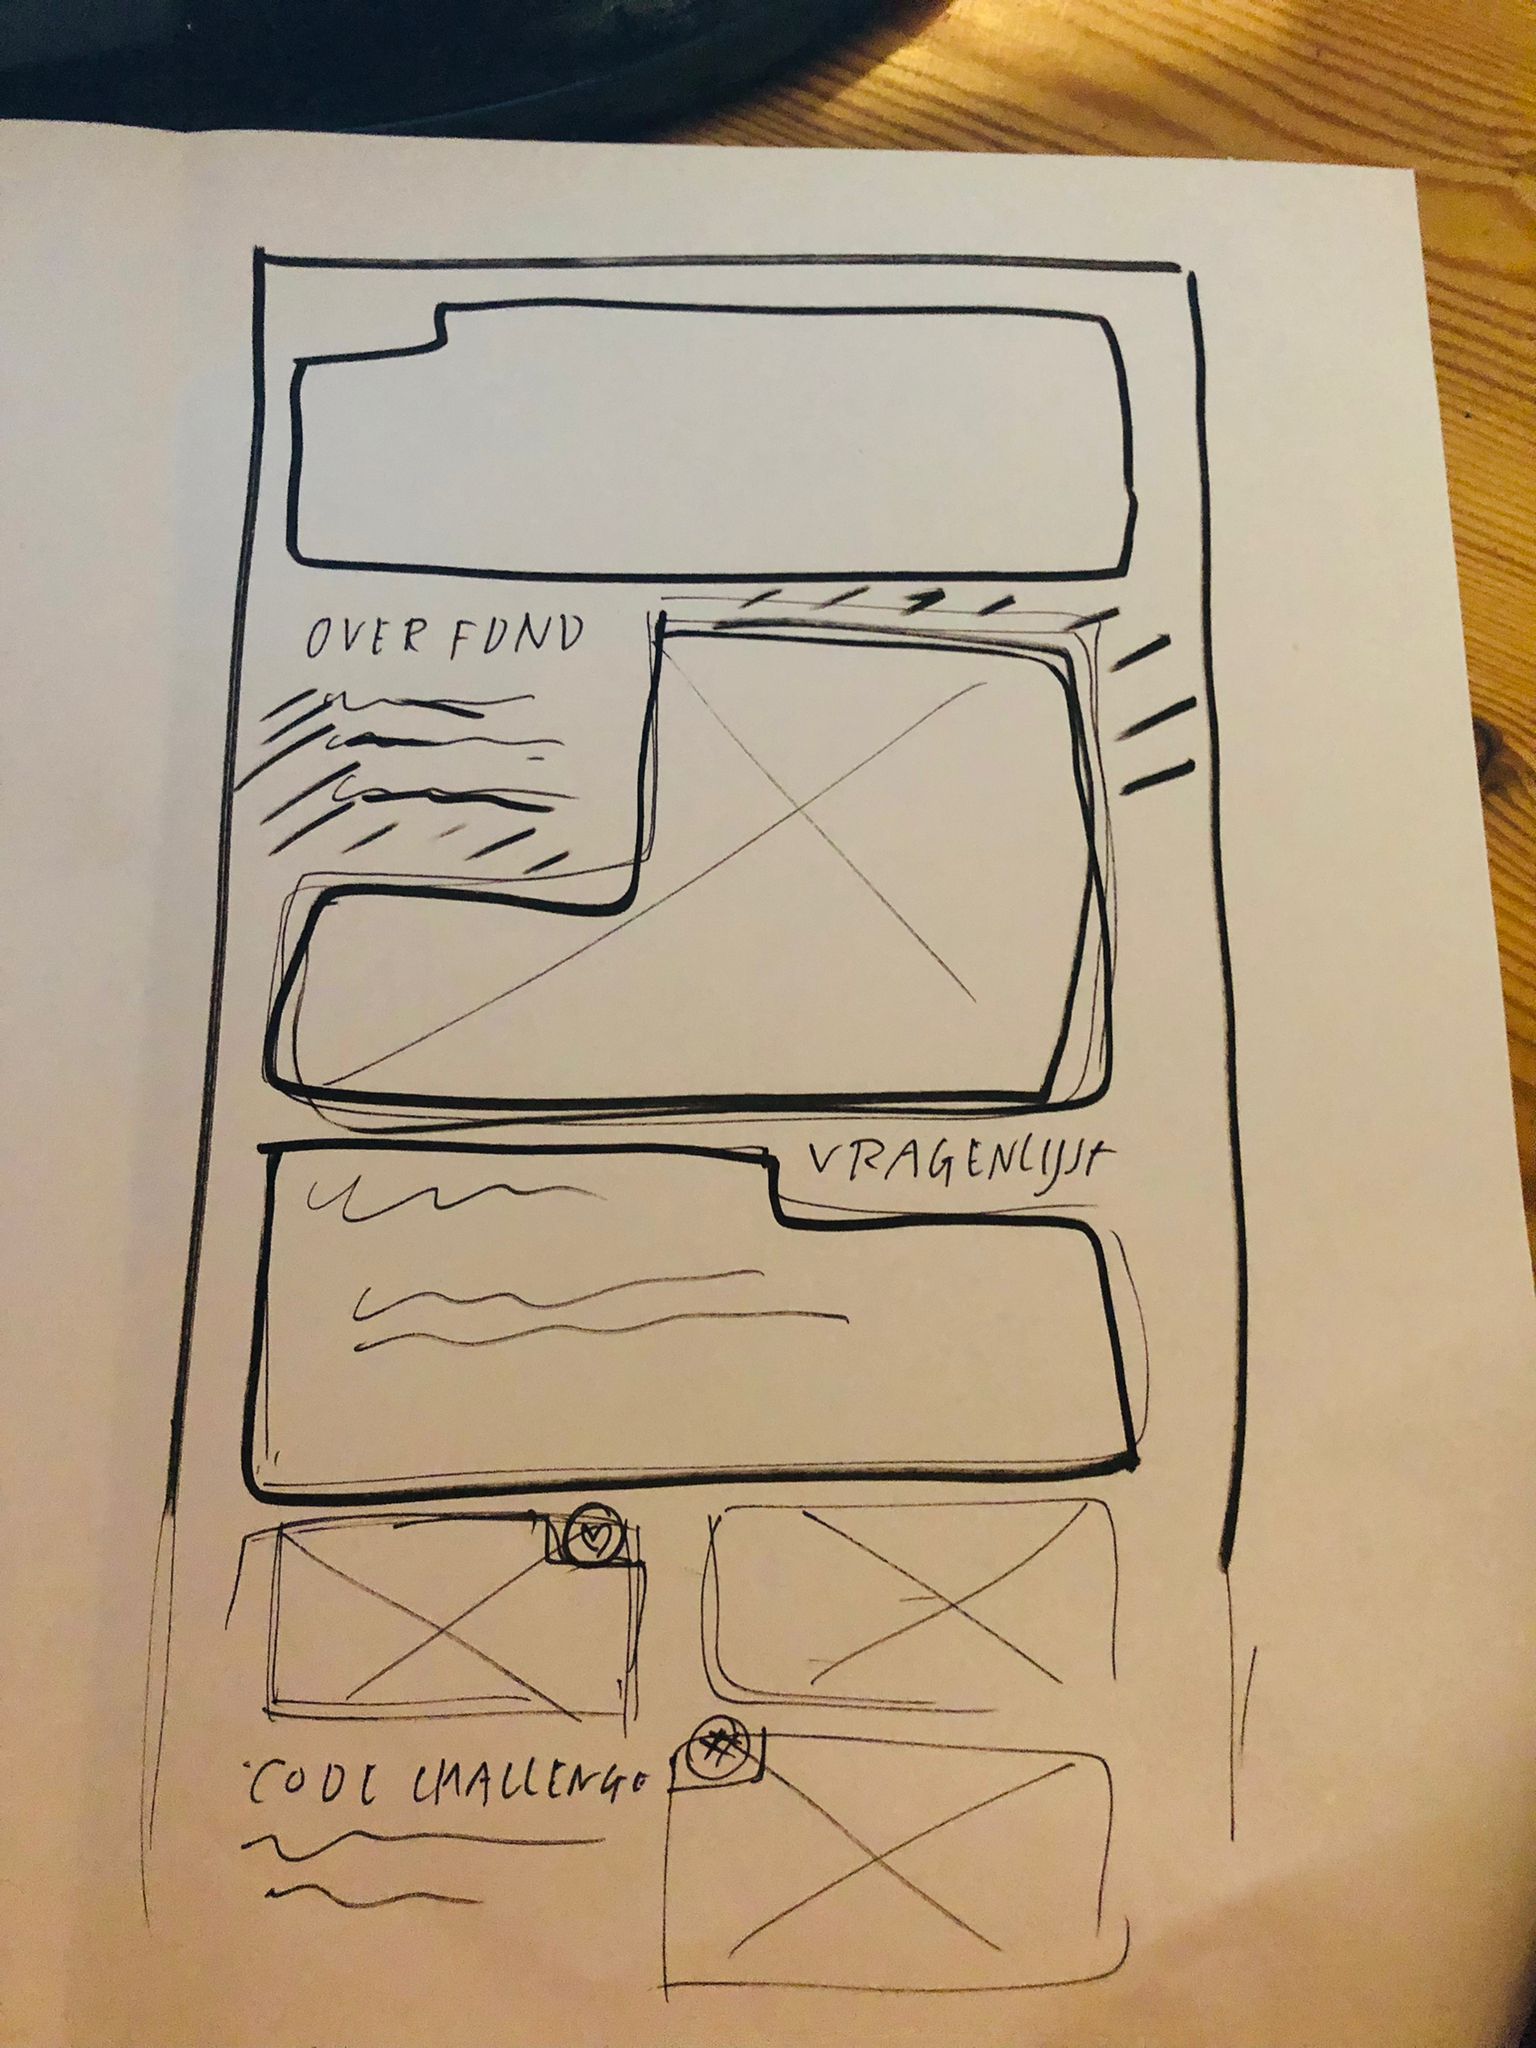 OVER FUND
VRAGENLIJST
CODE CHALLENGE